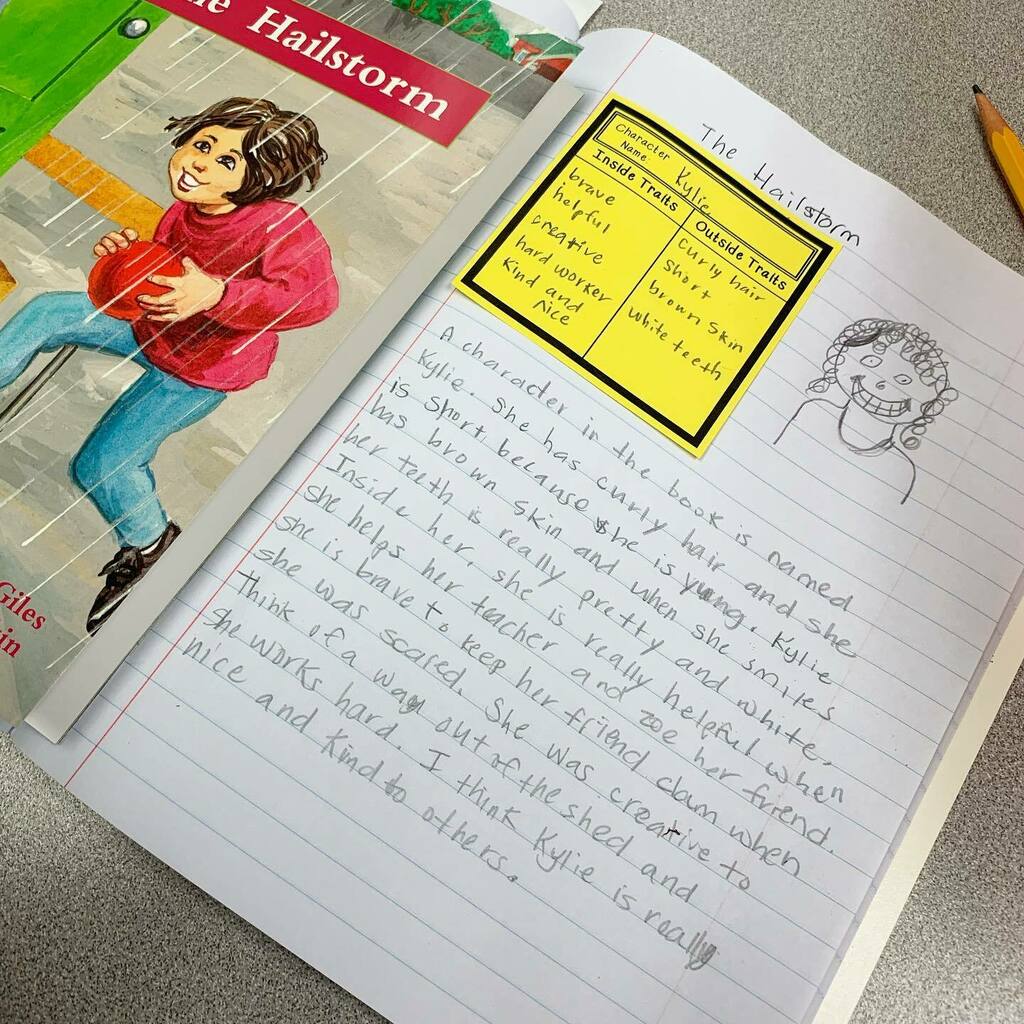 he Hailstorm
Giles
The Hailstorm
Character
Name: Kylie
Inside Traits
brave
helpful
creative
hard worker
Kind and
nice
Outside Traits
Curly hair
Short
brown skin
white teeth
A character in the book is named
Kylie. She has curly hair and she
is short because she is yung. Kylie
has brown skin and when she smiles
her teeth is really pretty and white.
Inside her, she is really helpful when
she helps her teacher and zoe her friend.
she is brave to keep her friend clam when
she was scared. She was creative to
Think of a way out of the shed and
She works hard. I think Kylie is really
nice and Kind to others.